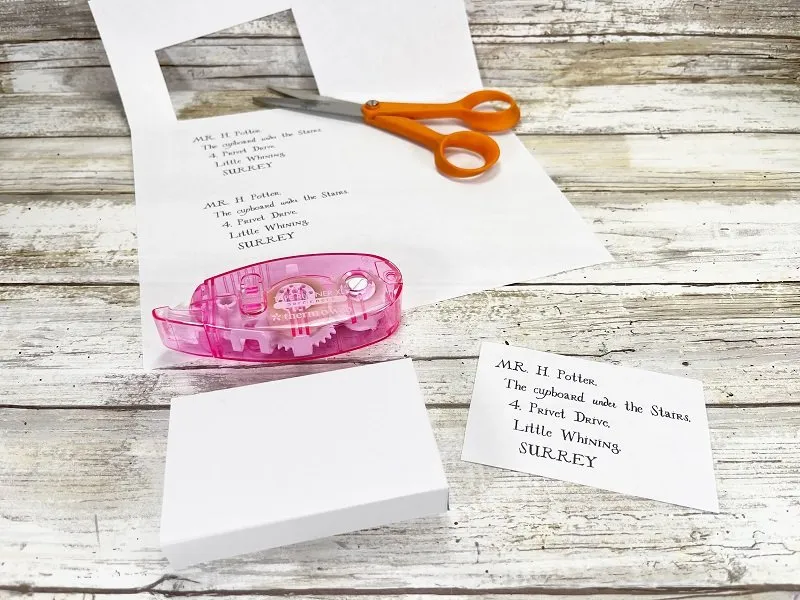 MR. H. Potter,
The cupboard under the Stairs,
4. Privet Drive,
Little Whining
SURREY
MR. H. Potter,
The cupboard under the Stairs,
4. Privet Drive,
Little Whining
SURREY
MR. H. Potter,
The cupboard under the Stairs,
4. Privet Drive,
Little Whining
SURREY